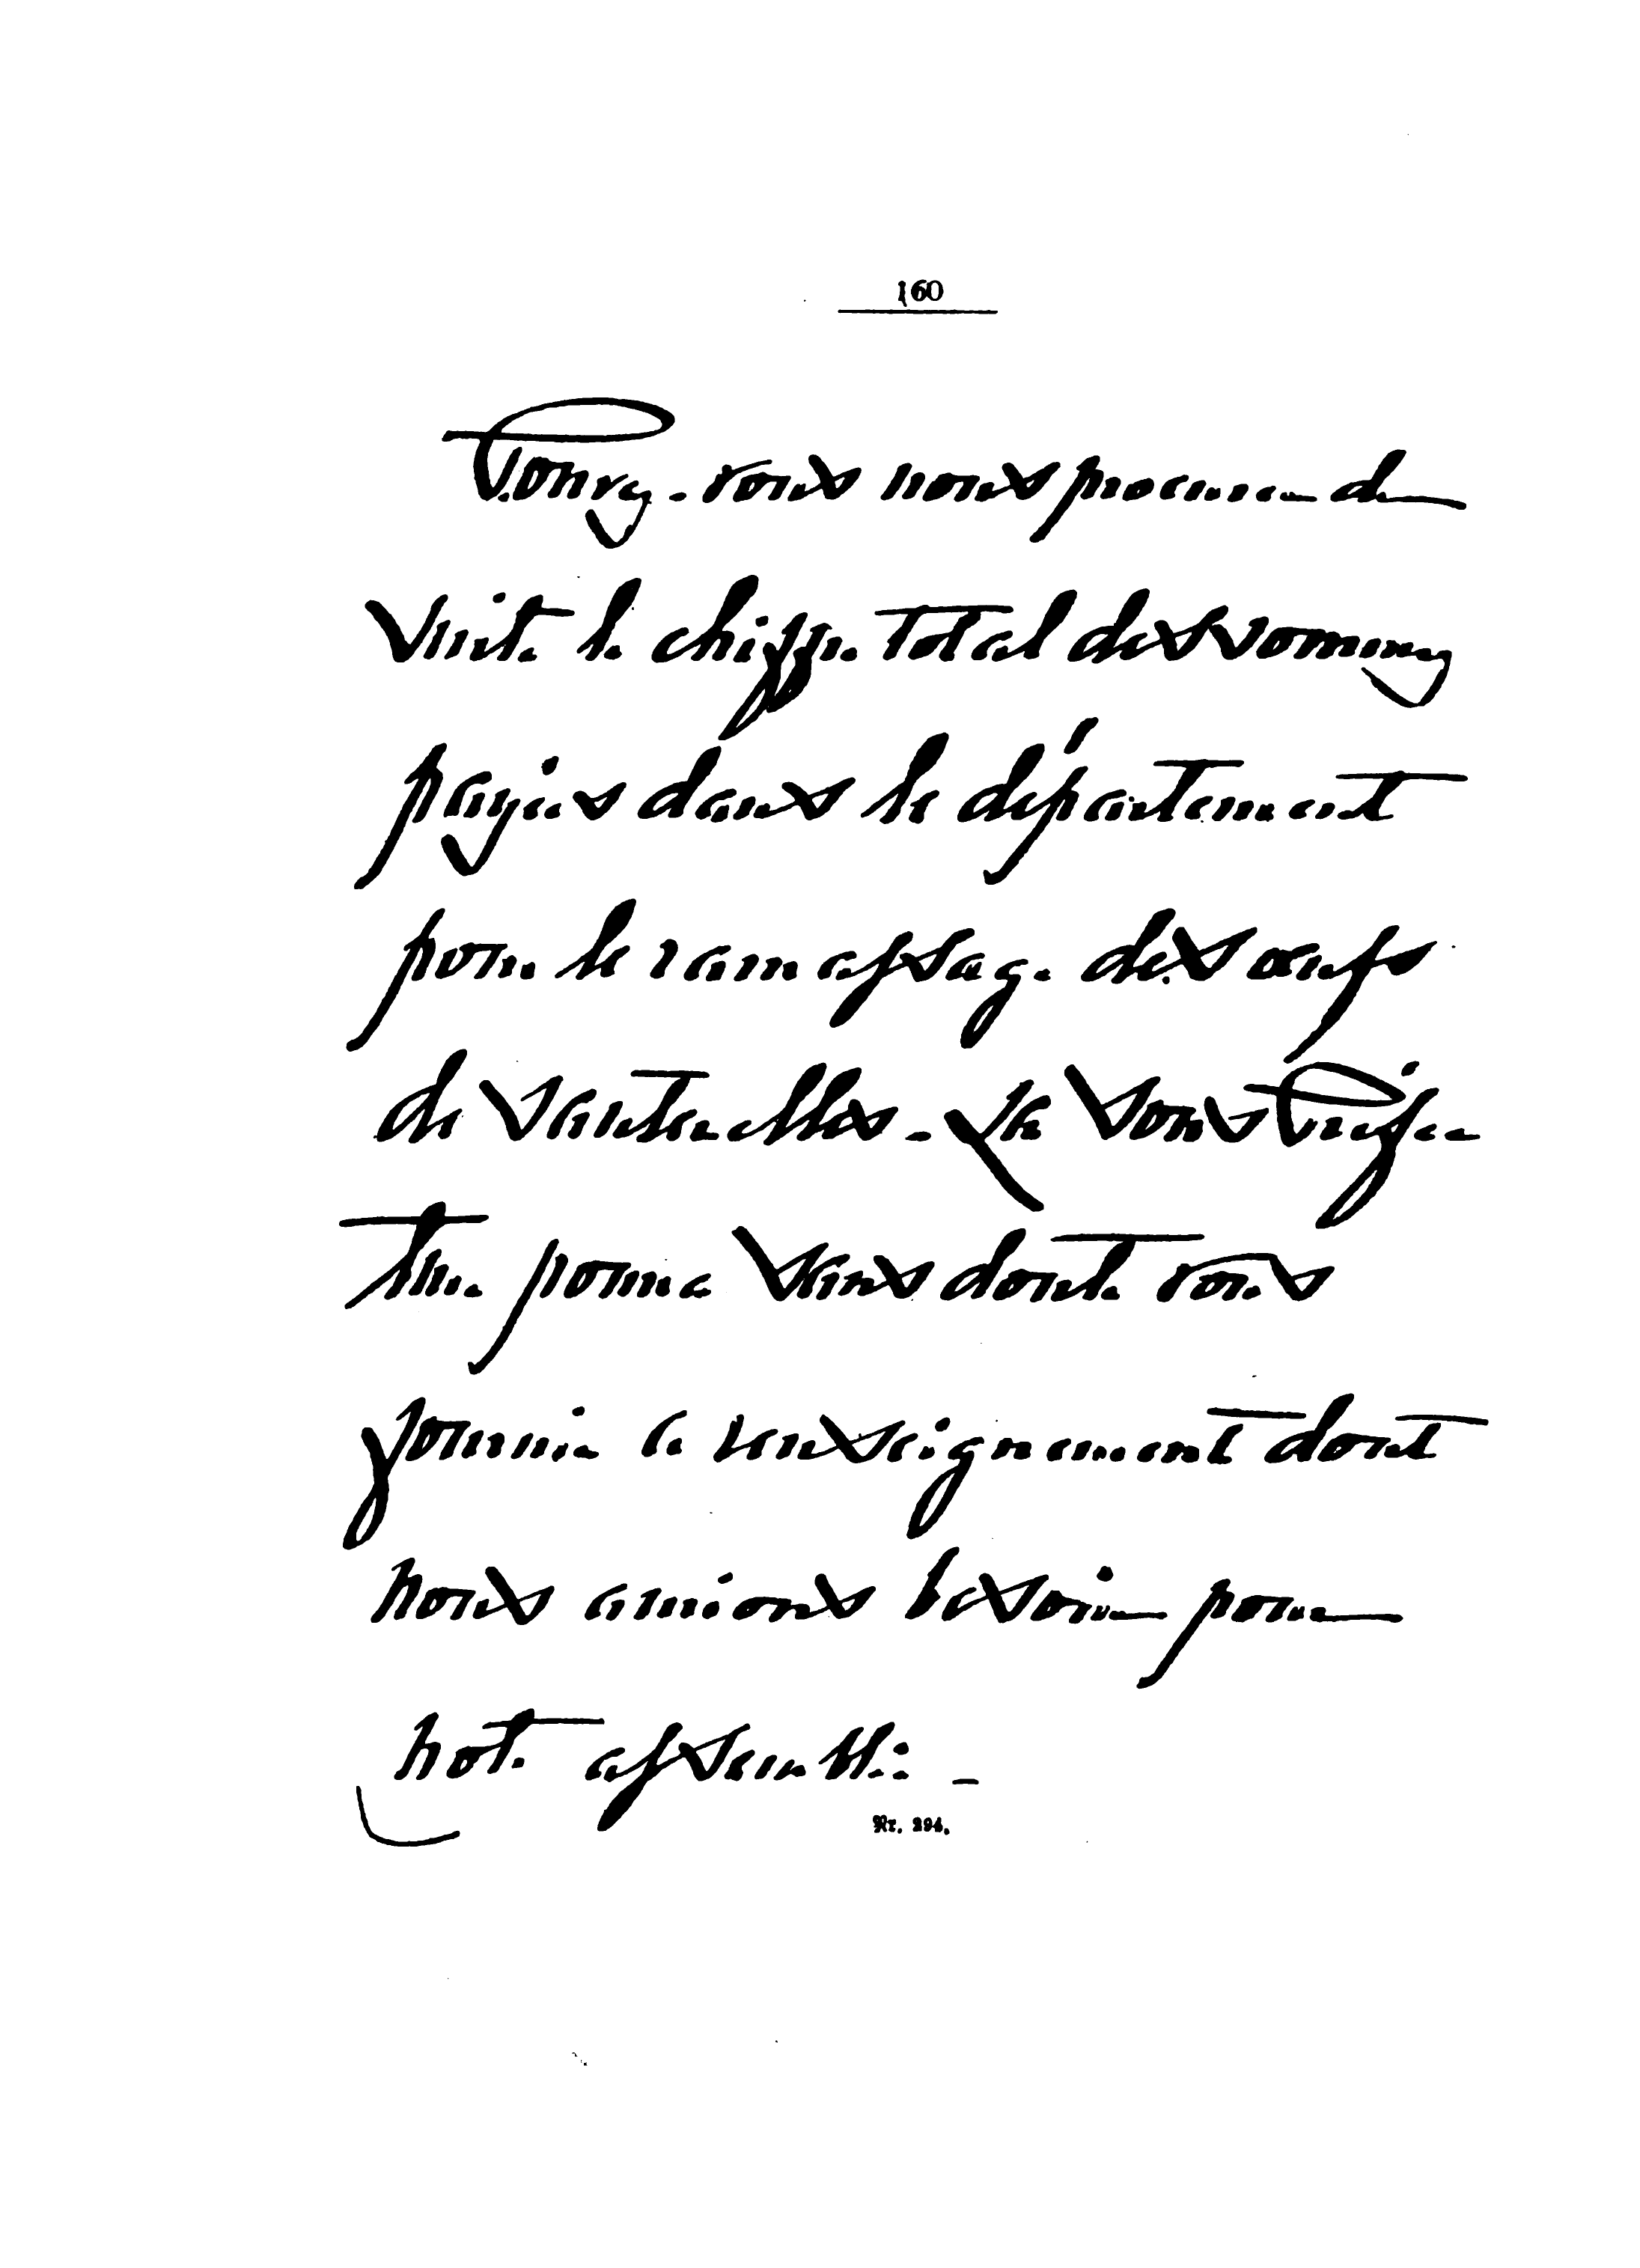 160
Pouvez-vous nous procurer de
suite le chiffre total des sommes
payées dans le département
pour le ramassage des œufs
de sauterelles. Le Sous Préfet
then pourra sans doute vous
fournir ce renseignement dont
nous aurions besoin pour
notre assemblée
Nr. 294.